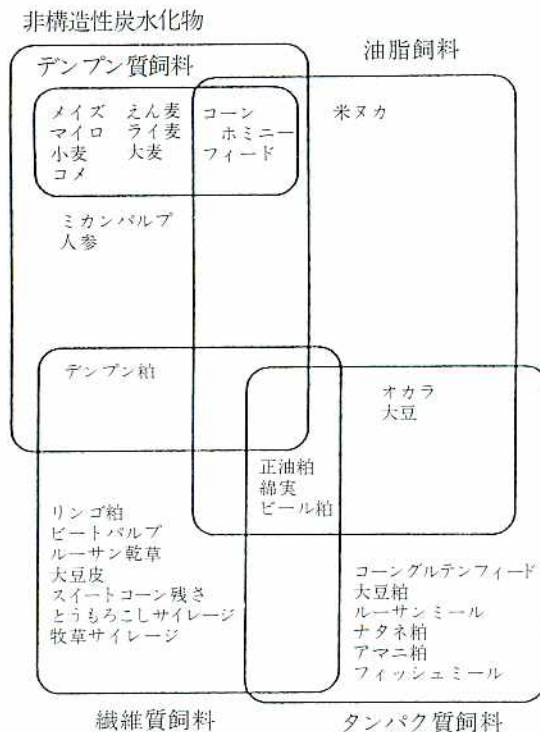 非構造性炭水化物
デンプン質飼料
油脂飼料
メイズ えん麦
マイロ ライ麦
小麦 大麦
コメ
コーン
ホミニー
フィード
米ヌカ
ミカンパルプ
人参
デンプン粕
オカラ
大豆
正油粕
綿実
ビール粕
リンゴ粕
ビートパルプ
ルーサン乾草
大豆皮
スイートコーン残さ
とうもろこしサイレージ
牧草サイレージ
コーングルテンフィード
大豆粕
ルーサンミール
ナタネ粕
アマニ粕
フィッシュミール
繊維質飼料
タンパク質飼料